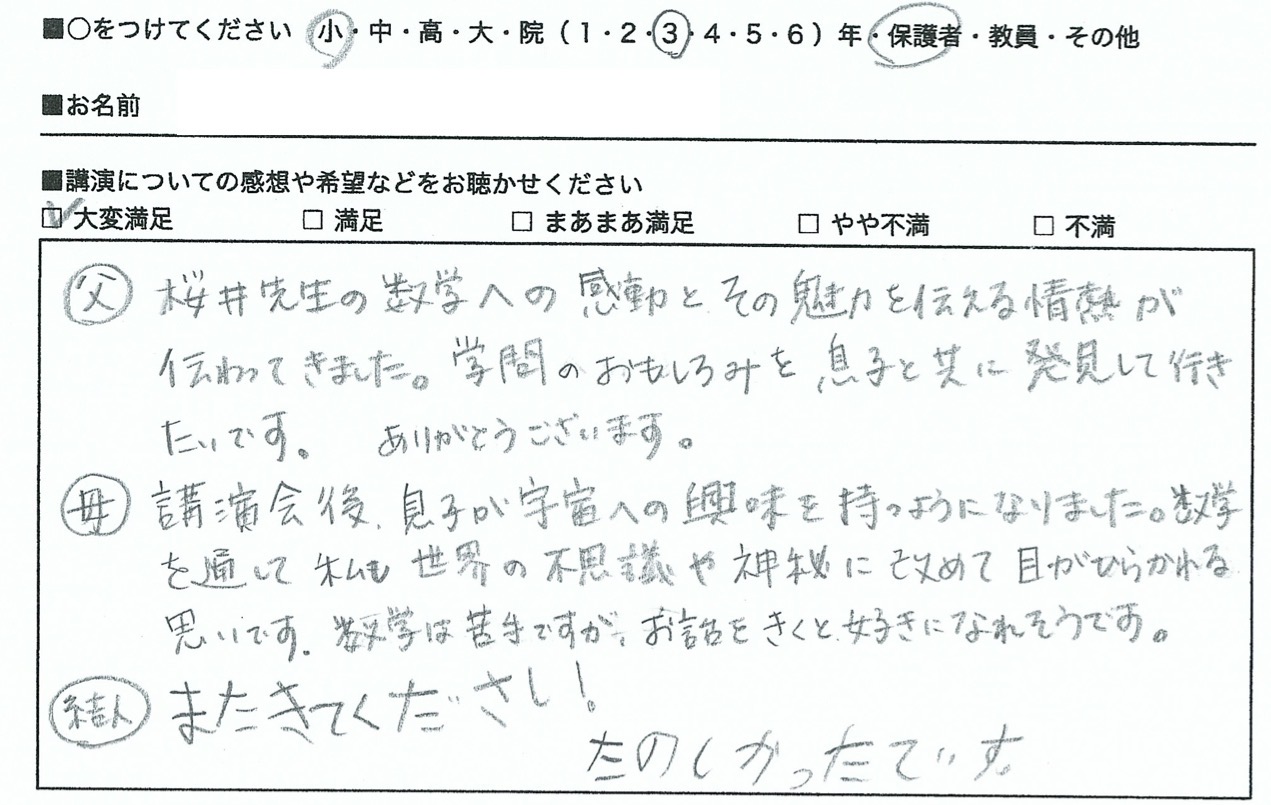 ■○をつけてください 小・中・高・大・院（1・2・3・4・5・6）年・保護者・教員・その他
■お名前
■講演についての感想や希望などをお聴かせください
□大変満足 □ 満足 □ まあまあ満足 □ やや不満 □ 不満
父 桜井先生の数学への感動とその魅力を伝える情熱が
伝わってきました。学問のおもしろみを息子と共に発見して行き
たいです。 ありがとうございます。
母 講演会後、息子が宇宙への興味を持つようになりました。数学
を通して私も世界の不思議や神秘に改めて目がひらかれる
思いです。数学は苦手ですが、お話をきくと好きになれそうです。
結人 またきてください！
たのしかったでいす。